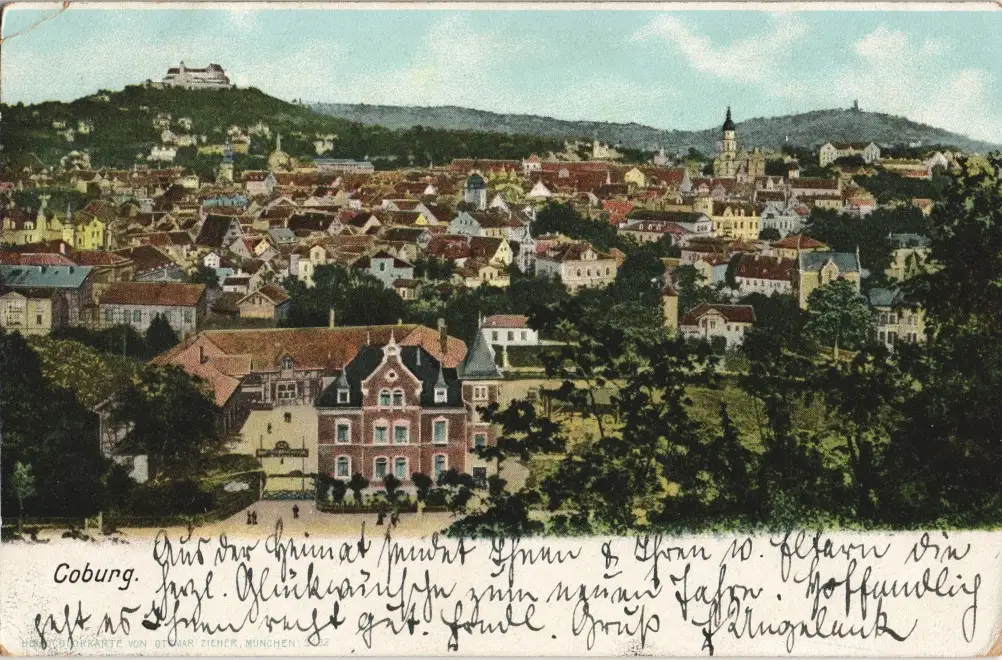 Coburg.
Aus der Heimat sendet Ihnen & Ihren w. Eltern die
herzl. Glückwünsche zum neuen Jahre. Hoffendlich
geht es Ihnen recht gut. Frndl. Gruß
KARTE VON OTTMAR ZIEHER, MÜNCHEN